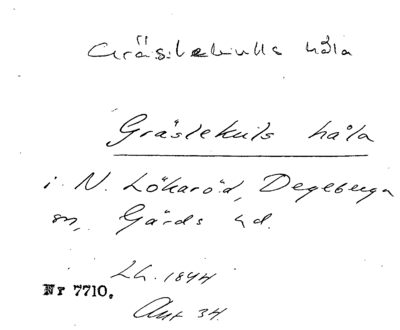 Gräslekulls håla
Gräslekuls håla
i N. Lökaröd, Degeberga
sn, Gärds hd.
LG. 1844
Nr 7710.
Ant 34.